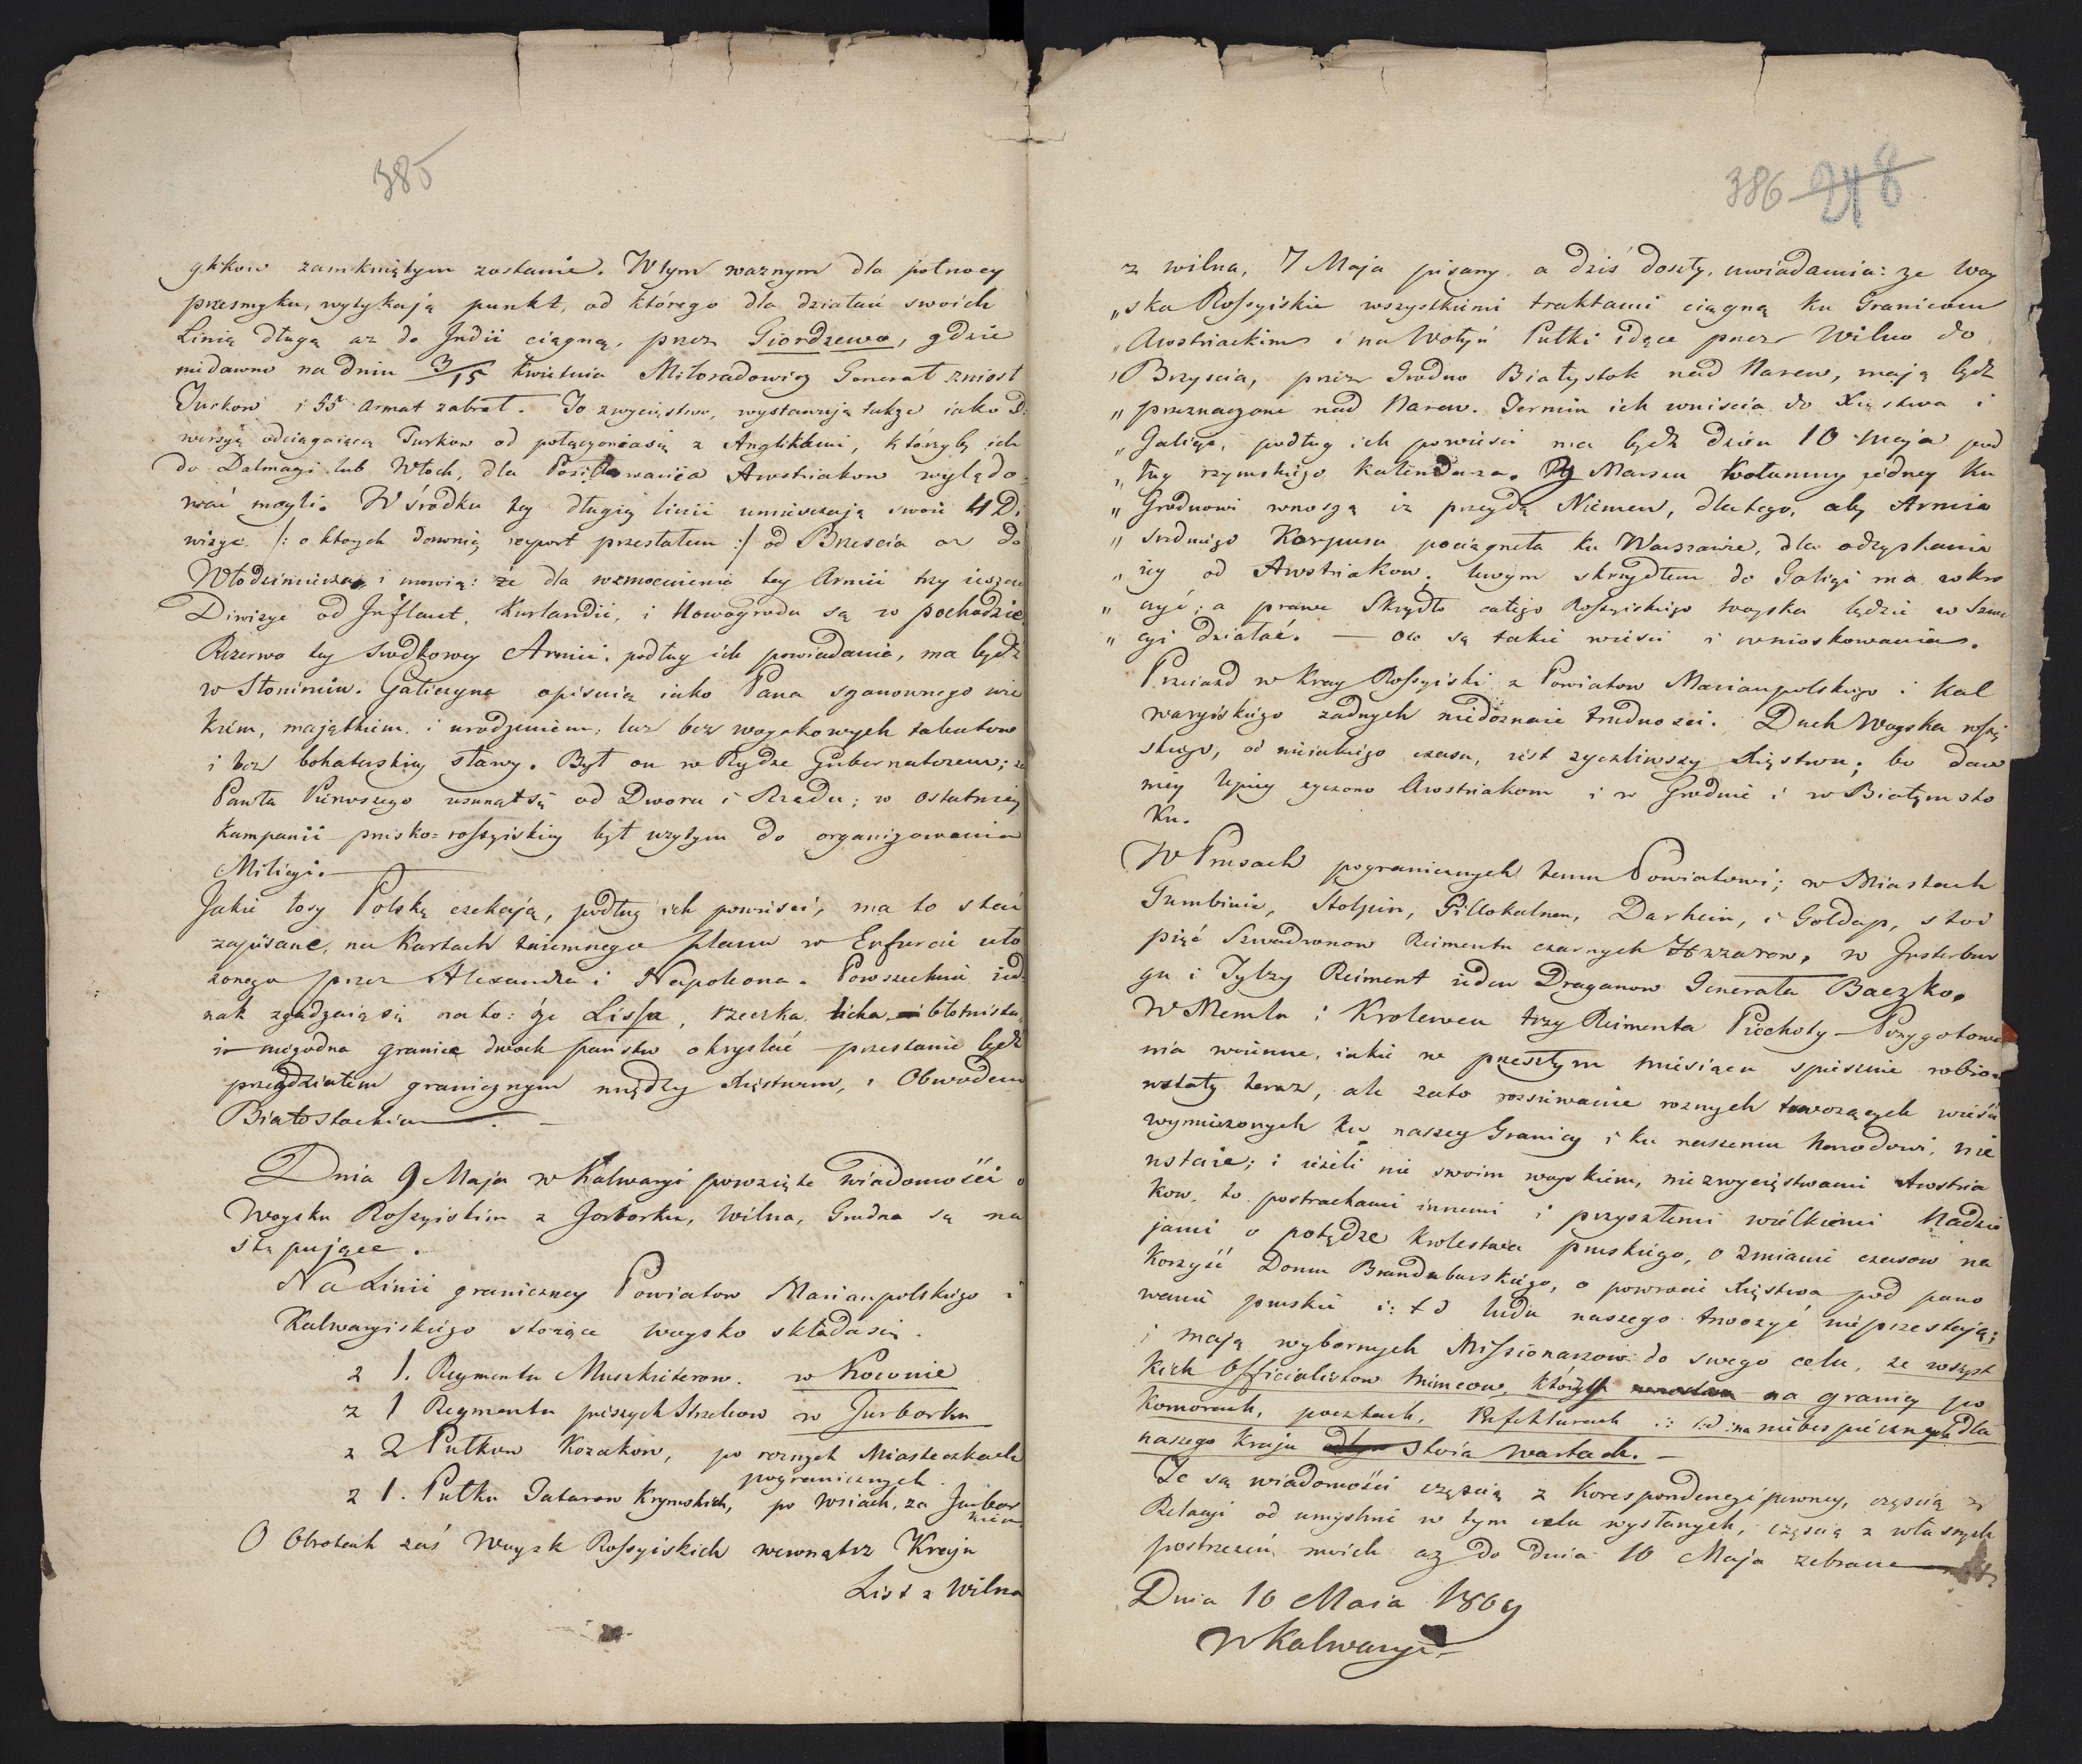 385
glikow zamkniętym zostanie. Wtym ważnym dla północy
przesmyku, wytykają punkt, od którego dla działań swoich
Linią długą aż do Indii ciągną, przez Giordzewo, gdzie
niedawno na dniu 3/15 Kwietnia Miłoradowicz Generał zniosł
Turkow i 55 armat zabrał. To zwycięstwo, wystawują także iako D:
wersyą odciągaiącą Turkow od połączeniasię z Anglikami, którzyby ich
do Dalmacyi lub Włoch, dla Posiłkowania Awstriakow wylądo:
wać mogli. W środku tey długiey linii umieszczają swoie 4 Di
wizye /: o ktorych dawniey raport przesłałem :/ od Brześcia aż do
Włodzimierza i mowią: że dla wzmocnienia tey Armii trzy ieszcze
Diwizye od Inflant, Kurlandii, i Nowogrodu są w pochodzie
Rezerwa tey Srodkowey Armii, podług ich powiadania, ma bydź
w Słonimiu. Galiczyna opisuią iako Pana szanownego wie
kiem, majątkiem, i urodzeniem, lecz bez woyskowych talentow
i bez bohaterskiey sławy. Był on w Rydze Gubernatorem; za
Pawła Pierwszego usunąłsię od Dworu i Rządu; w ostatniey
Kampanii prusko-rossyiskiey był użytym do organizowania
Milicyi.
Jakie losy Polskę czekają, podług ich powieści, ma to stać
zapisane, na Kartach taiemnego planu w Erfurcie uło
żonego przez Alexandra i Napoleona. Powszechnie ied
nak zgadzaią się na to: że Lissa, rzeczka licha i błotnista,
i niegodna granice dwóch państw okryslać przestanie bydź
przedziałem granicznym między Xięstwem, i Obwodem
Białostockim.
Dnia 9 Maja w Kalwaryi powzięte Wiadomości o
Woysku Rossyiskim z Jorborku, Wilna, Grodna są na
stępujące.
Na Linii graniczney Powiatow Mariampolskiego i
Kalwaryiskiego stoiące woysko składasię.
z 1. Regimentu Muszkieterow. w Kownie
z 1 Regimentu pieszych Strzelcow w Jurborku
z 2 Pułkow Kozakow, po roznych Miasteczkach
pogranicznych
z 1. Pułku Tatarow Krymskich, po Wsiach, za Jurbor
kiem
O Obrotach zaś Woysk Rossyiskich wewnątrz Kraju
List z Wilna
386 248
z wilna, 7 Maja pisany, a dziś doszły, uwiadamia: że Woy
„ska Rossyiskie wszystkiemi traktami ciągną ku Granicom
„Awstriackim i na Wołyń Pułki idące przez Wilno do
„Brzyscia, przez Grodno Białystok nad Narew, mają bydź
„przeznaczone nad Narew. Termin ich wniscia do Xięstwa i
„Galicyi, podług ich powieści ma bydź dzień 10 Maja pod
„ług rzymskiego Kalendarza. Z Marszu Kolumny iedney ku
„Grodnowi wnoszą iż przeydą Niemen, dlatego, aby Armia
„sredniego Korpusu pociągneła ku Warszawie, dla odzyskania
„iey od Awstriakow. lewym skrzydłem do Galicyi ma wkro
„czyć; a prawe Skrzydło całego Rossyiskiego woyska będzie w Szwe
„cyi działać. — Oto są takie wieści i wnioskowania.
Przeiazd w Kray Rossyiski z Powiatow Mariampolskiego i Kal
waryiskiego żadnych niedoznaie trudności. Duch Woyska rossyi
skiego, od nieiakiego czasu, iest życzliwszy Xięstwu; bo daw
niey lepiey życzono Awstriakom i w Grodnie i w Białymsto
Ku.
W Prusach pogranicznych temu Powiatowi; w Miastach
Gumbinie, Stolpin, Pillokalnen, Darhein, i Goldap, stoi
pięć Szwadronow Reimentu czarnych Huzzarow, w Insterbur
gu i Tylzy Reiment ieden Draganow Generała Baczko.
W Memlu i Krolewcu trzy Reimenta Piechoty. Przygotowa
nia woienne, iakie w przeszłym miesiącu spiesznie robiono
ustały teraz, ale zato rozsiewanie roznych trwożących wieści
wymierzonych ku naszey Granicy i ku naszemu Narodowi, nie
ustaie; i ieżeli nie swoim woyskiem, nie zwycięstwami Awstria
kow, to postrachami innemi i przyszłemi wielkiemi Nadzie
jami o potędze krolestwa pruskiego, o zmianie czasow na
Korzyść Domu Brandeburskiego, o powrocie Xięstwa pod pano
wanie pruskie i: t d ludu naszego trwożyć nieprzestają;
i mają wybornych Missionarzow do swego celu, ze wszyst
kich Officialistow Niemcow, którzy na granicy po
Komorach, pocztach, Prefekturach i: t.d: na niebespiecznych dla
naszego Kraju stoią Wartach. —
Te są wiadomości częścią z Korespondencyi pewney, częścią z
Relacyi od umyślnie w tym celu wysłanych, częścią z własnych
postrzeżeń moich aż do dnia 10 Maja zebrane
Dnia 10 Maia 1809
w Kalwaryi